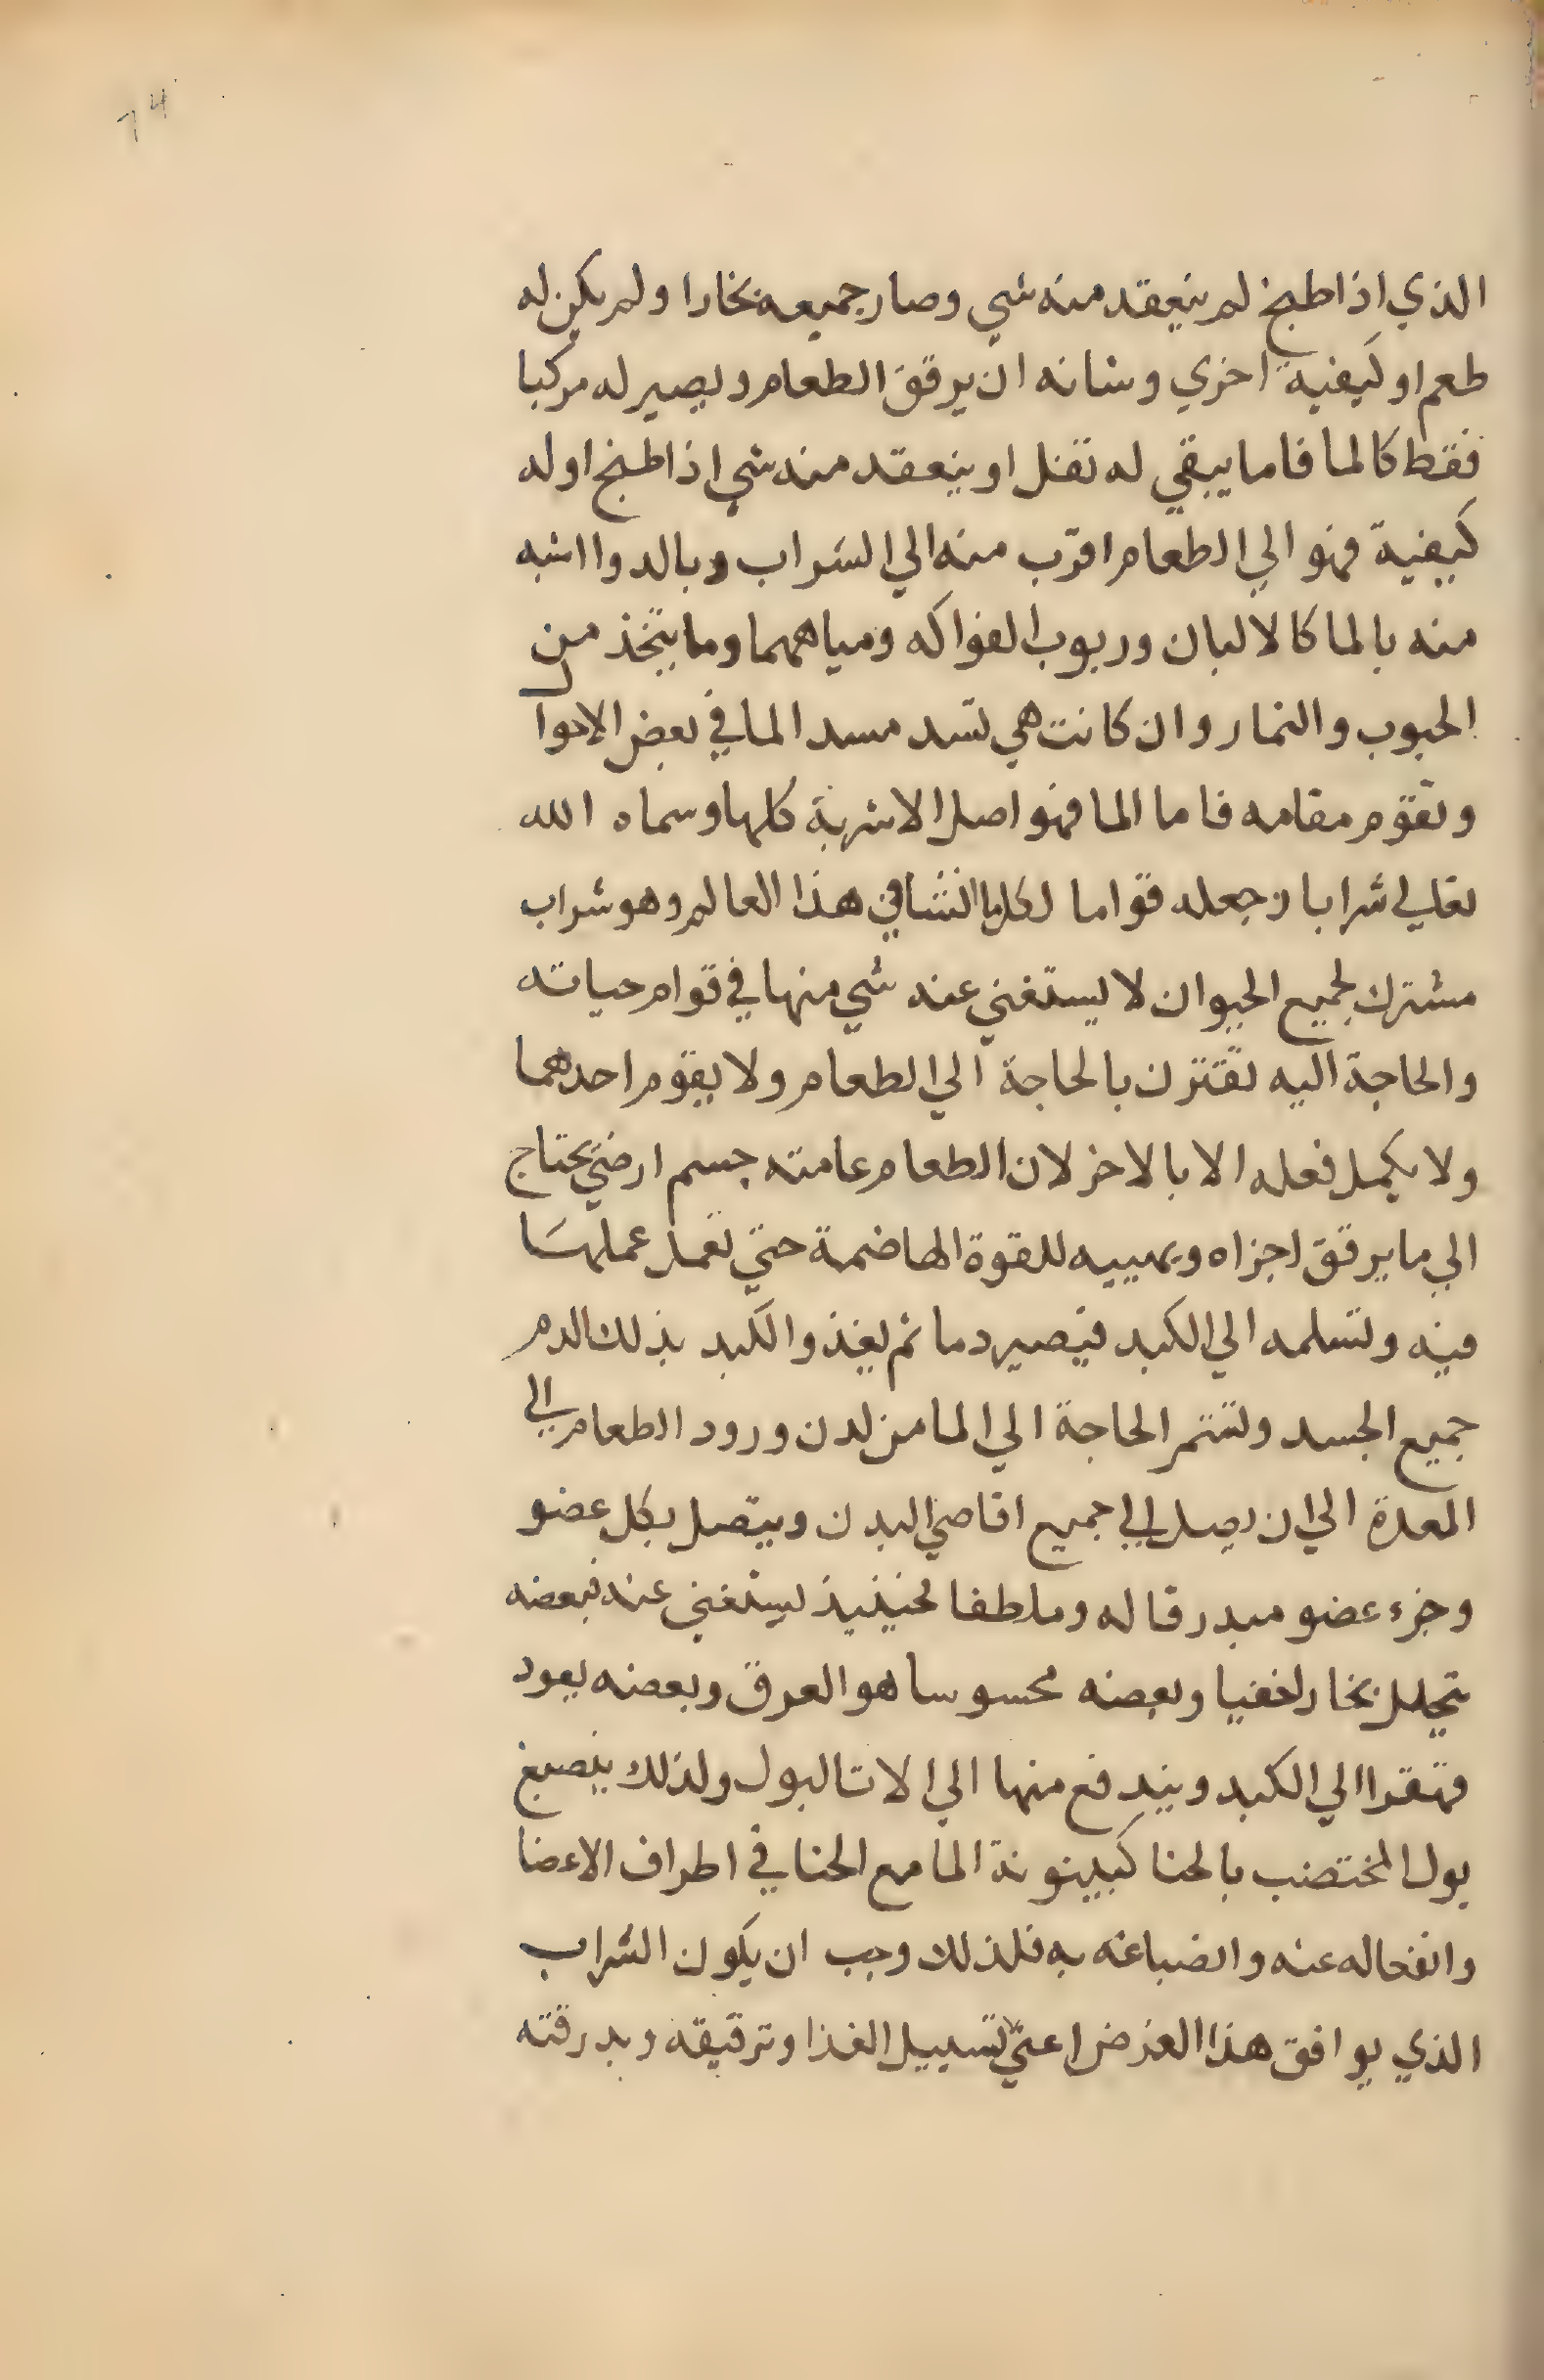 الذي اذا طبخ لم ينعقد منه شي وصار جميعه بخارا ولم يكن له
طعم او كيفية اخري وشانه ان يرقق الطعام ويصير له مركبا
فقط كالما فاما يبقي له ثفل او ينعقد منه شي اذا طبخ او له
كيفية فهو الي الطعام اقرب منه الي الشراب وبالدوا اشبه
منه بالما كالالبان وربوب الفواكه ومياههما وما يتخذ من
الحبوب والثمار وان كانت هي تسد مسد الما في بعض الاحوال
وتقوم مقامه فاما الما فهو اصل الاشربة كلها وسماه الله
تعلي شرابا وجعله قواما لكل ما انشا في هذا العالم وهو شراب
مشترك لجميع الحيوان لا يستغني عنه شي منها في قوام حياته
والحاجة اليه تقترن بالحاجة الي الطعام ولا يقوم احدهما
ولا يكمل فعله الا بالاخر لان الطعام عامته جسم ارضي يحتاج
الي ما يرقق اجزاه ويهييه للقوة الهاضمة حتي تعمل عملها
فيه وتسلمه الي الكبد فيصير دما ثم يغذوا الكبد بذلك الدم
جميع الجسد وتستمر الحاجة الي الما من لدن ورود الطعام الي
المعدة الي ان يصل الي جميع اقاصي البدن ويتصل بكل عضو
وجزء عضو مبدرقا له وملطفا فحينيذ يستغني عنه فبعضه
يتحلل بخارا خفيا وبعضه محسوسا هو العرق وبعضه يعود
قهقرا الي الكبد ويندفع منها الي الات البول ولذلك ينصبغ
بول المختضب بالحنا كبينونة الما مع الحنا في اطراف الاعضا
وانفحاله عنه وانصباغه به فلذلك وجب ان يكون الشراب
الذي يوافق هذا الغرض اعني تسييل الغذا وترقيقه وبدرقته